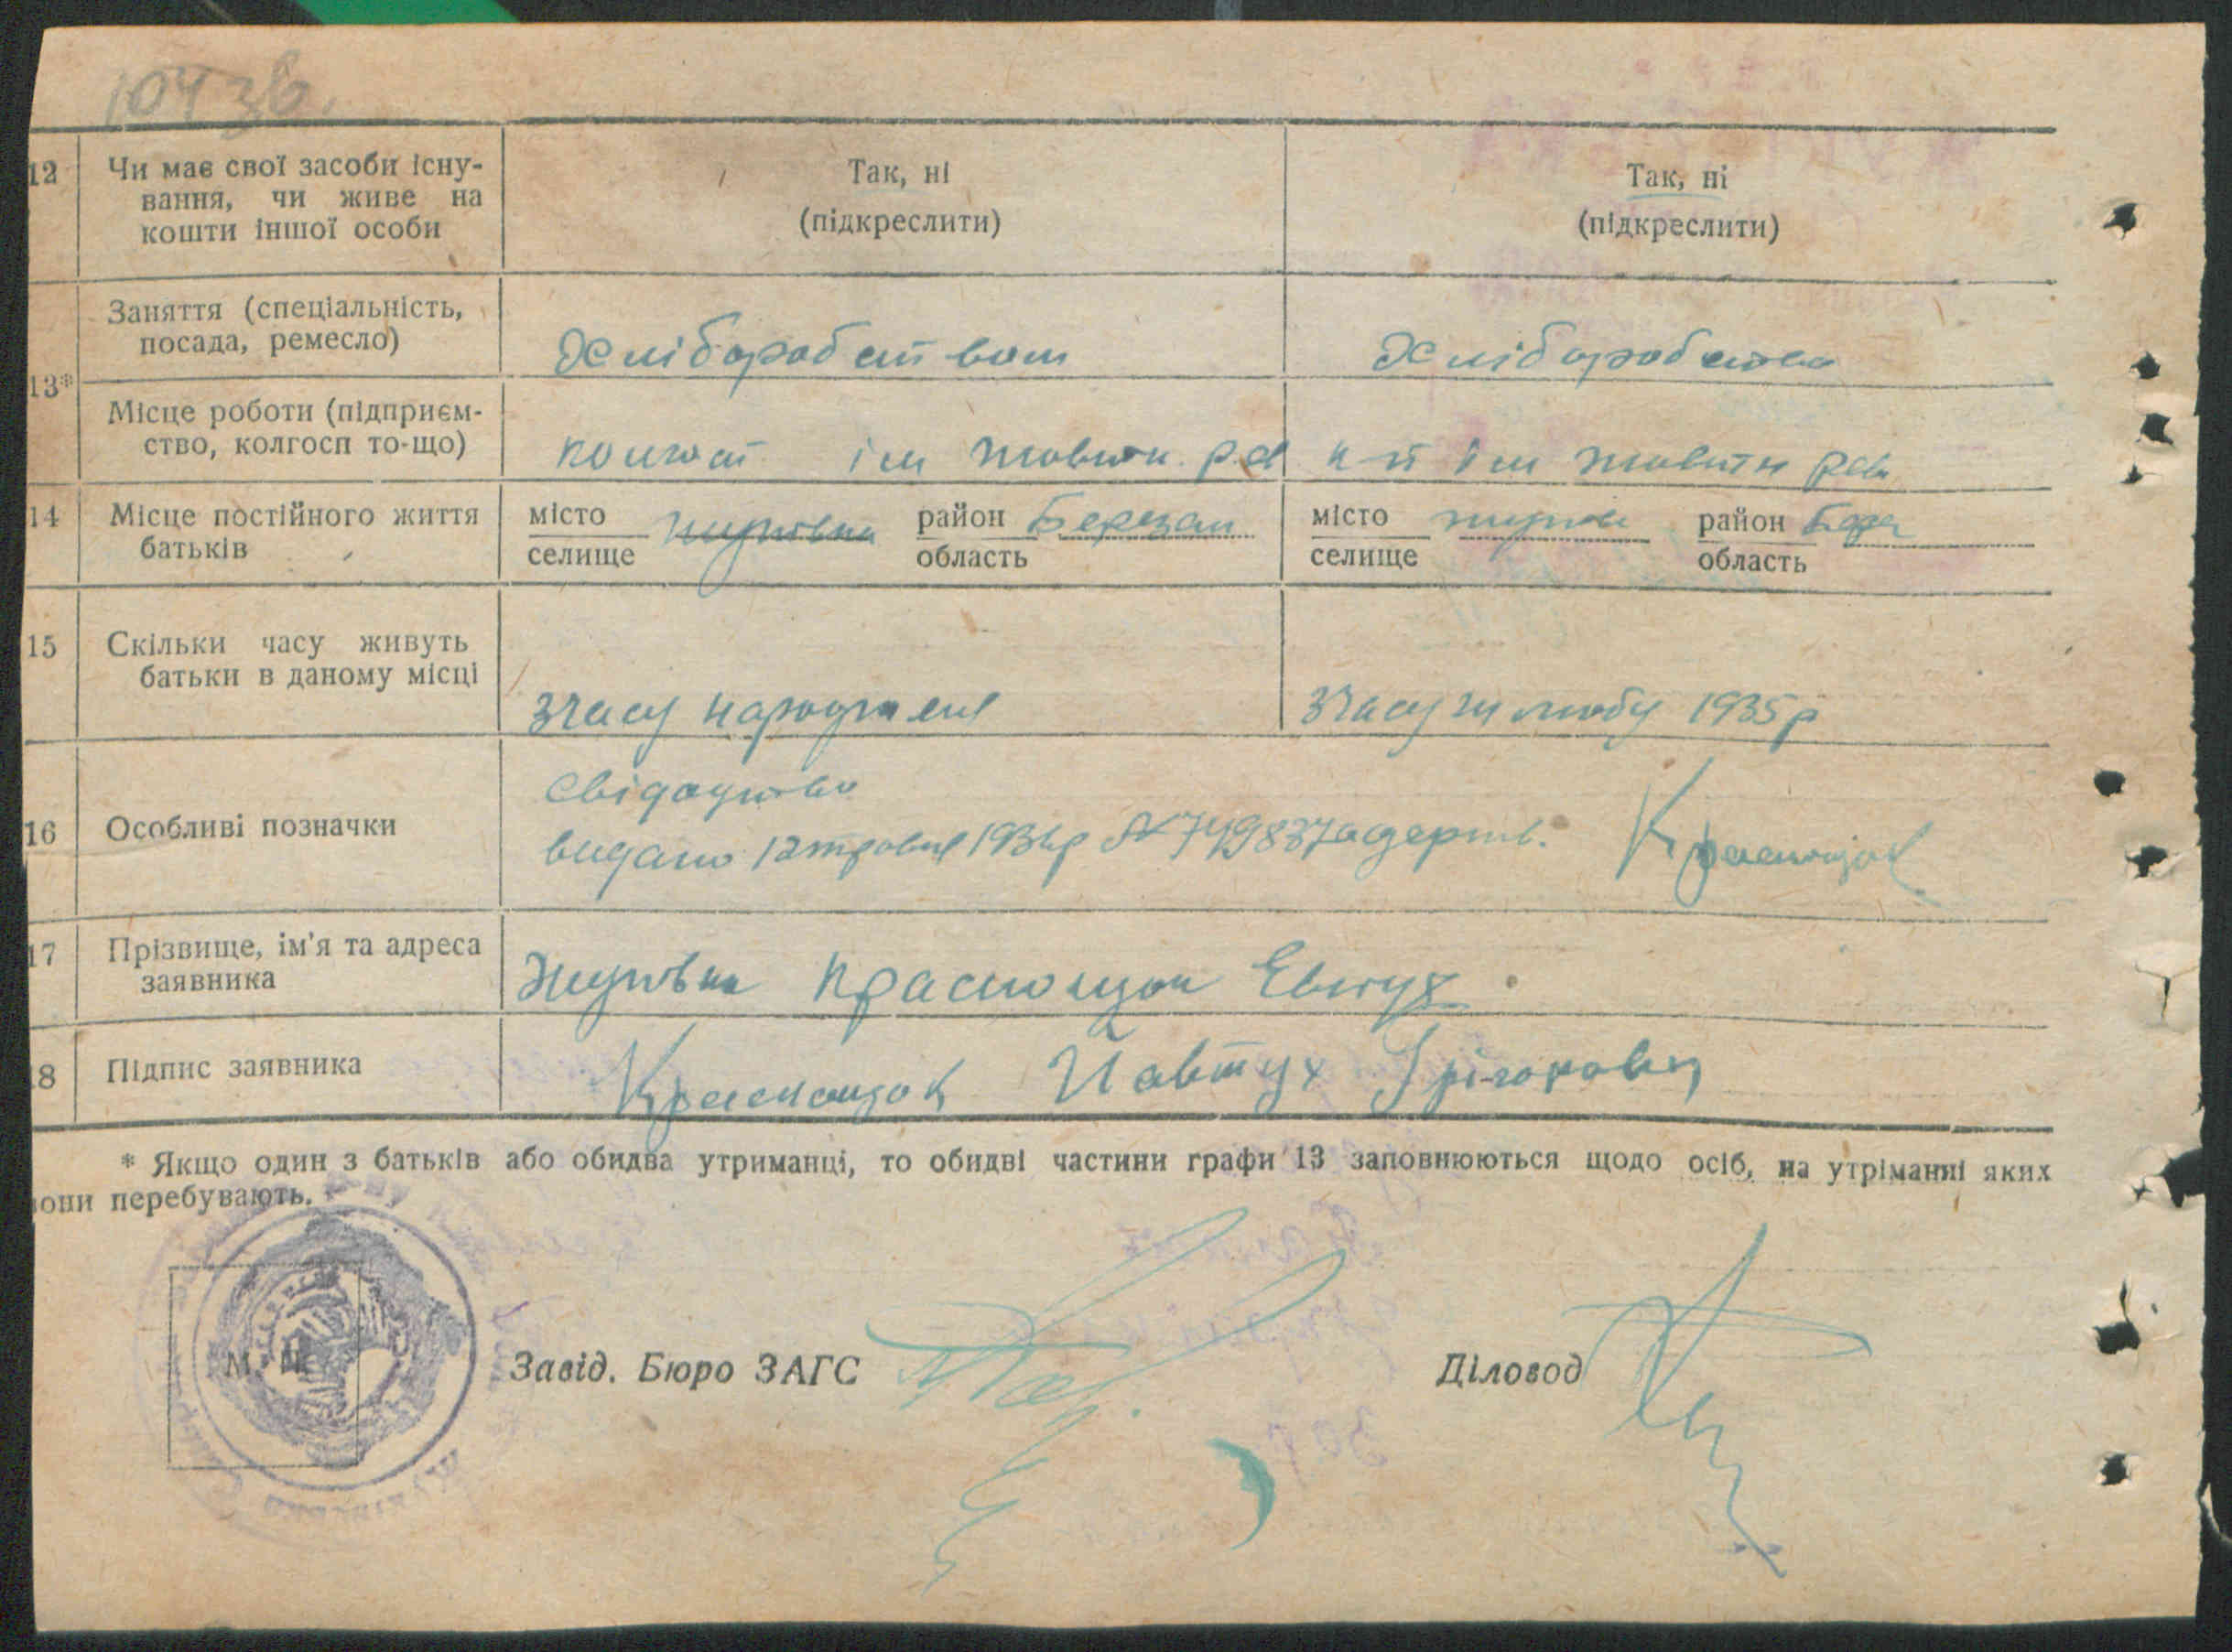 104 зв.
12 Чи має свої засоби існу-
вання, чи живе на
кошти іншої особи
Так, ні
(підкреслити)
Так, ні
(підкреслити)
13* Заняття (спеціальність,
посада, ремесло)
Хліборобством
Хліборобство
Місце роботи (підприєм-
ство, колгосп то-що)
ім жовтн. рев
к-п ім жовтн рев
14 Місце постійного життя
батьків
місто
селище
Жуківка
район
область
Березан
місто
селище
район
область
Бере
15 Скільки часу живуть
батьки в даному місці
з часу народження
з часу шлюбу 1935 р
16 Особливі позначки
Свідоцтво
видано 12 травня 193 р № 749837 одерж.
Краснощок
17 Прізвище, ім'я та адреса
заявника
Жуківка Краснощок Евтух
18 Підпис заявника
Краснощок Йавтух Грігорович
* Якщо один з батьків або обидва утриманці, то обидві частини графи 13 заповнюються щодо осіб, на утріманні яких
вони перебувають.
М. П.
Завід. Бюро ЗАГС
Діловод